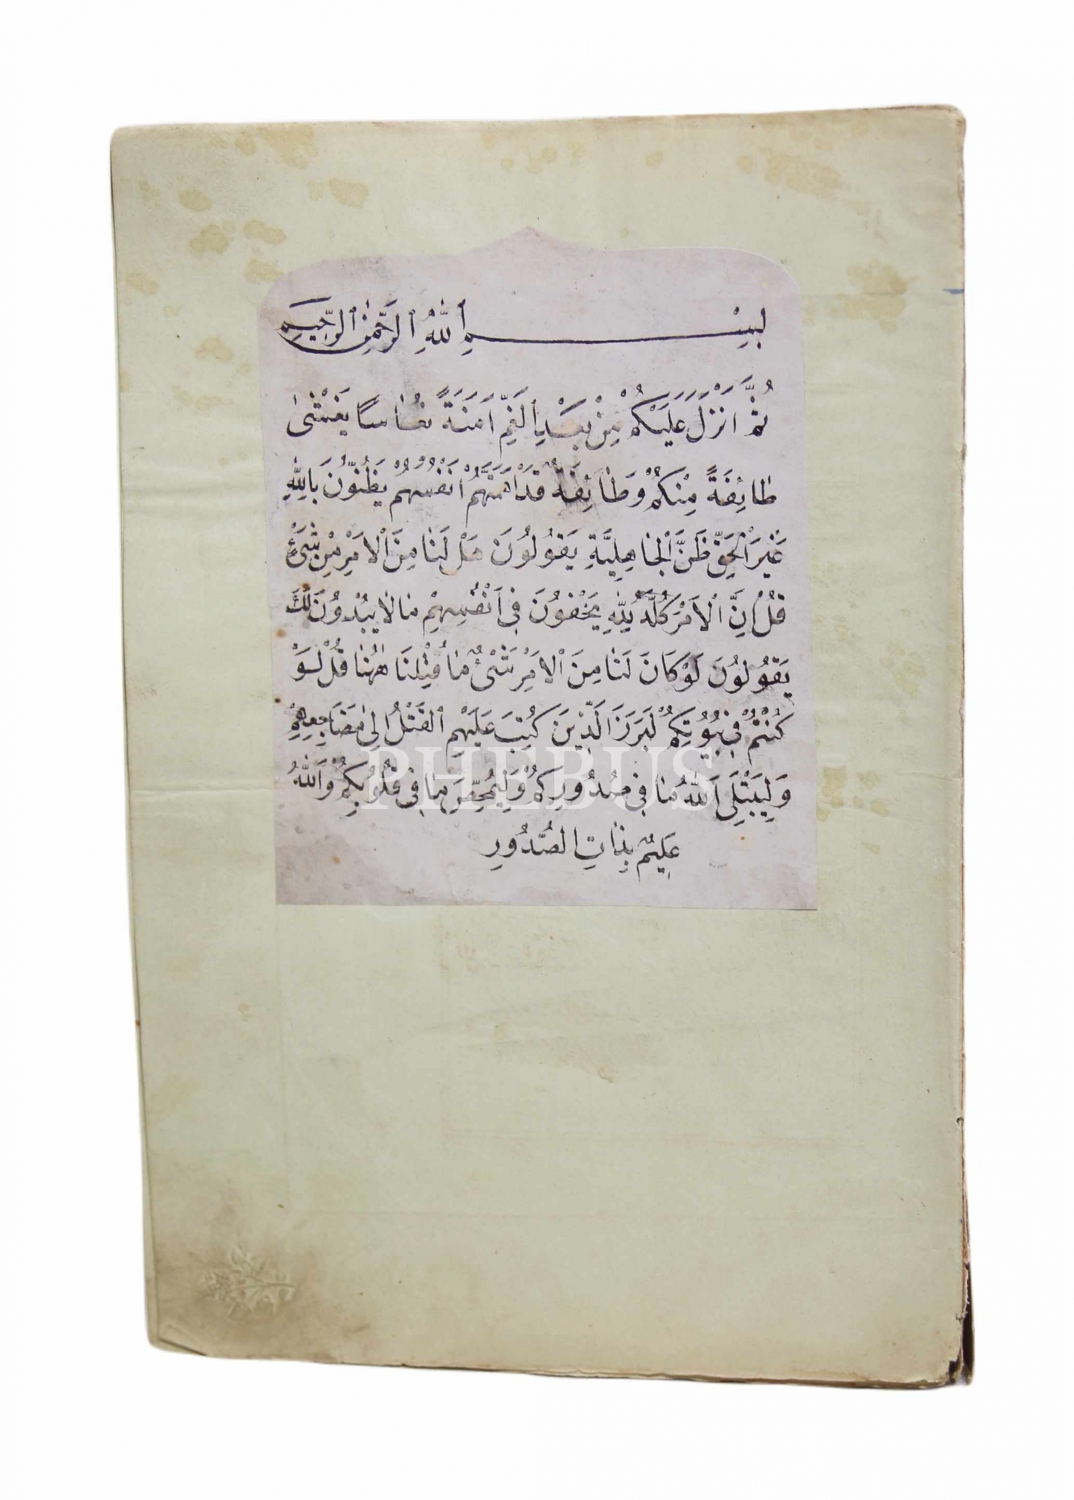 بِسْمِ اللّٰهِ الرَّحْمٰنِ الرَّحِيمِ
ثُمَّ اَنْزَلَ عَلَيْكُمْ مِنْ بَعْدِ الْغَمِّ اَمَنَةً نُعَاسًا يَغْشٰى
طَائِفَةً مِنْكُمْ وَطَائِفَةٌ قَدْ اَهَمَّتْهُمْ اَنْفُسُهُمْ يَظُنُّونَ بِاللّٰهِ
غَيْرَ الْحَقِّ ظَنَّ الْجَاهِلِيَّةِ يَقُولُونَ هَلْ لَنَا مِنَ الْاَمْرِ مِنْ شَيْءٍ
قُلْ اِنَّ الْاَمْرَ كُلَّهُ لِلّٰهِ يُخْفُونَ فِي اَنْفُسِهِمْ مَا لَا يُبْدُونَ لَكَ
يَقُولُونَ لَوْ كَانَ لَنَا مِنَ الْاَمْرِ شَيْءٌ مَا قُتِلْنَا هٰهُنَا قُلْ لَوْ
كُنْتُمْ فِي بُيُوتِكُمْ لَبَرَزَ الَّذِينَ كُتِبَ عَلَيْهِمُ الْقَتْلُ اِلٰى مَضَاجِعِهِمْ
وَلِيَبْتَلِيَ اللّٰهُ مَا فِي صُدُورِكُمْ وَلِيُمَحِّصَ مَا فِي قُلُوبِكُمْ وَاللّٰهُ
عَلِيمٌ بِذَاتِ الصُّدُورِ
PHEBUS